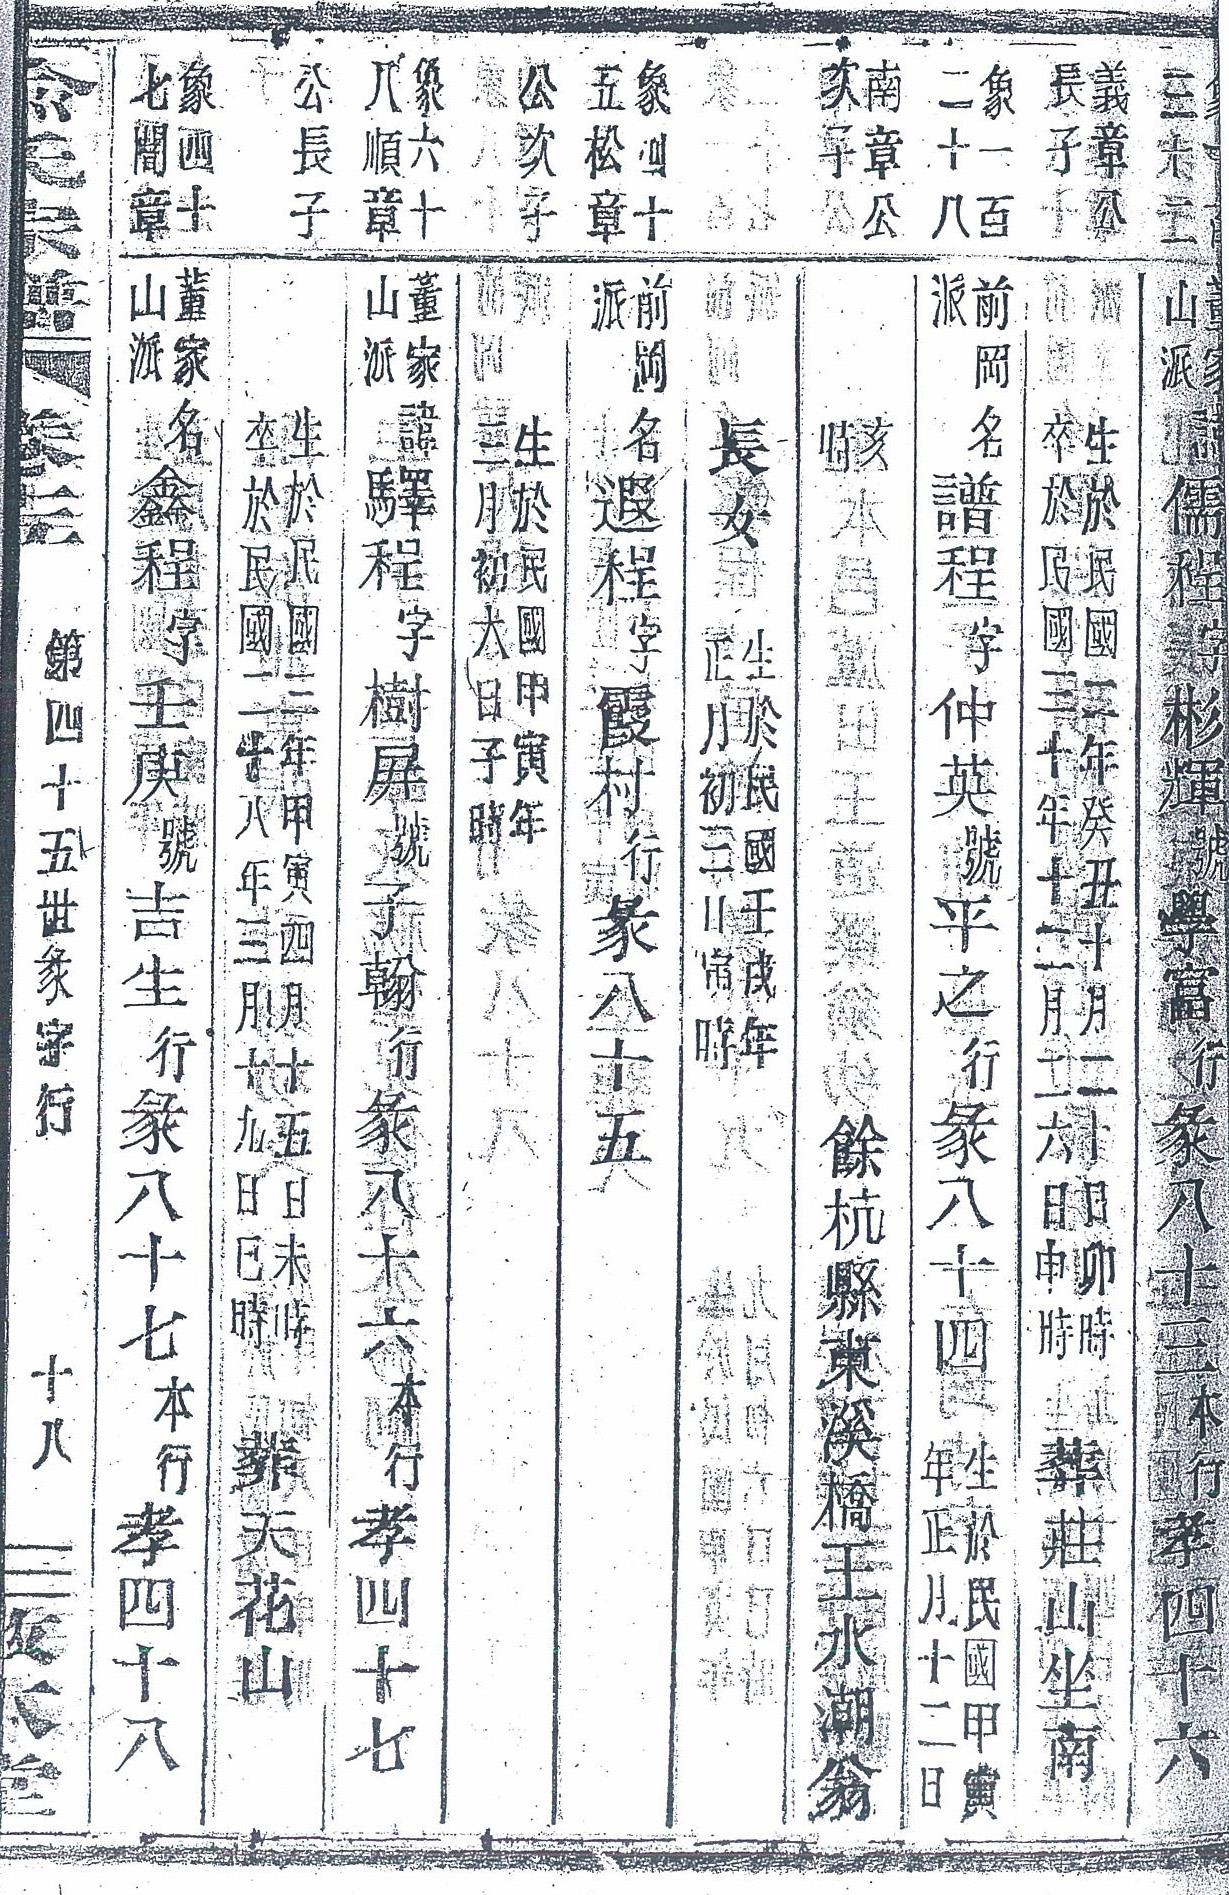 三十二
山派 諱儒程字彬輝號學富行彖八十三本行孝四十六
義章公
長子
生於民國二年癸丑十月二十日卯時
卒於民國三十年十二月十六日申時
葬莊山坐南
象一百
二十八
前岡
派
名譜程字仲英號平之行彖八十四
生於民國甲寅
年正月十二日
南章公
次子
亥
時
餘杭縣東溪橋王水潮翁
長女
生於民國壬戌年
正月初三日甯時
象四十
五松章
前岡
派
名遐程字霞村行彖八十五
公次子
生於民國甲寅年
三月初六日子時
象六十
八順章
董家
山派
諱驛程字樹屏號子翰行彖八十六本行孝四十七
公長子
生於民國三年甲寅四月十五日未時
卒於民國二十八年三月十九日巳時
葬天花山
象四十
七閭章
董家
山派
名鑫程字壬庚號吉生行彖八十七本行孝四十八
余氏宗譜
卷三
第四十五世彖字行
十八